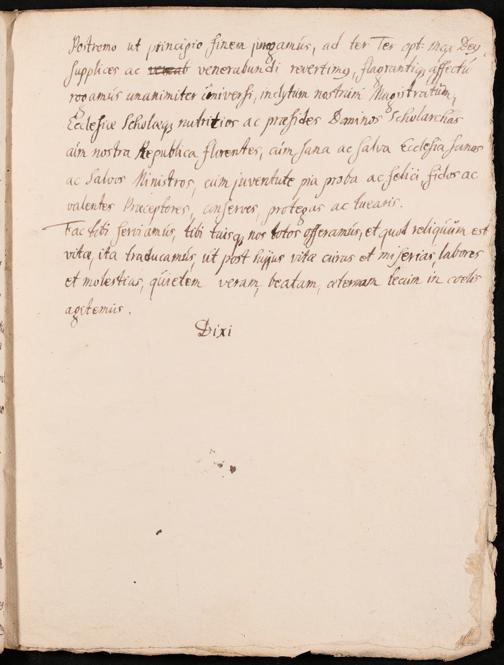 Postremo ut principio finem jungamus, ad ter Ter opt: mgq Deu
supplices ac venerabundi revertimur, flagrantiq affectu
rogamus unanimiter universi, inclytum nostrum Magistratum,
Ecclesiæ Scholæq nutritios ac præsides Dominos Scholarchas
cum nostra Republica florentes, cum sana ac salva Ecclesia sanos
ac salvos Ministros, cum juventute pia proba ac felici, fidos ac
valentes Præceptores, conserves, protegas ac tuearis.
Fac tibi serviamus, tibi tuisq nos totos offeramus, et quod reliquum est
vitæ, ita traducamus, ut post hujus vitæ curas et miserias, labores
et molestias, quietem veram, beatam, æternam tecum in coelis
agitemus.
Dixi